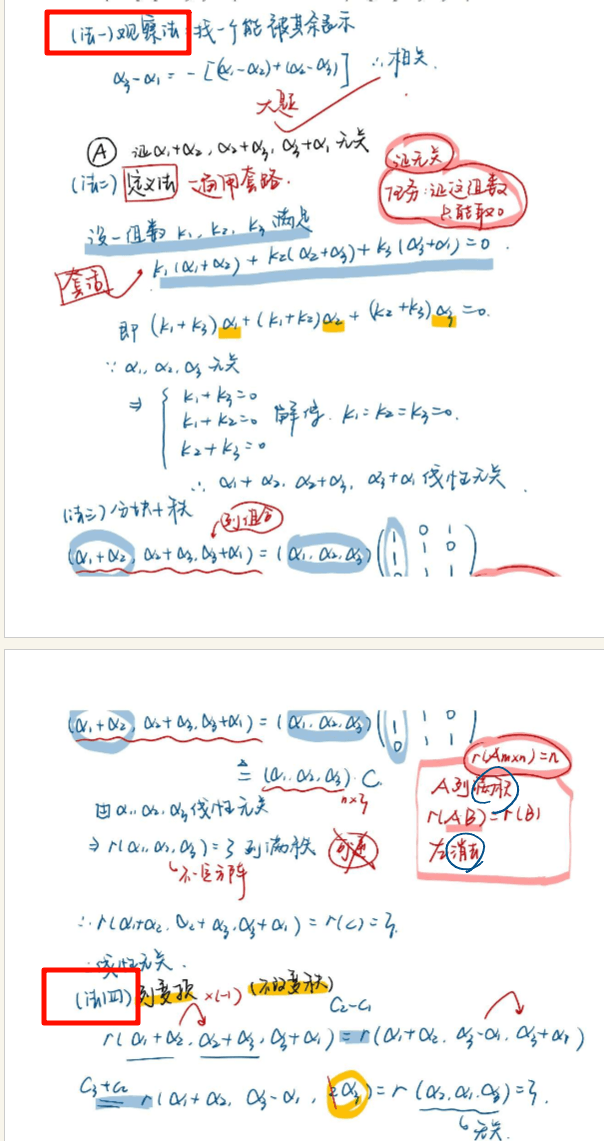 (法一)观察法:找一个能被其余表示
α₃-α₁=-[(α₁-α₂)+(α₂-α₃)] ∴相关.
大题
Ⓐ 证α₁+α₂, α₂+α₃, α₃+α₁无关
证无关
(法二) 定义法 — 通用套路.
任务:证这组数
只能取0
设一组数 k₁, k₂, k₃ 满足
套话
k₁(α₁+α₂)+k₂(α₂+α₃)+k₃(α₃+α₁)=0.
即 (k₁+k₃)α₁+(k₁+k₂)α₂+(k₂+k₃)α₃=0.
∵ α₁, α₂, α₃ 无关
⇒ { k₁+k₃=0
k₁+k₂=0 解得. k₁=k₂=k₃=0.
k₂+k₃=0
∴ α₁+α₂, α₂+α₃, α₃+α₁ 线性无关.
(法三)分块+秩
列组合
(α₁+α₂, α₂+α₃, α₃+α₁)=(α₁, α₂, α₃)(1 0 1
1 1 0
(α₁+α₂, α₂+α₃, α₃+α₁)=(α₁, α₂, α₃)(1 1 0
0 1 1)
r(Am×n)=n
≜ (α₁, α₂, α₃)·C.
n×3
A列满秩
r(AB)=r(B)
左消去
由α₁, α₂, α₃线性无关
⇒ r(α₁, α₂, α₃)=3 列满秩 可逆
不一定方阵
∴ r(α₁+α₂, α₂+α₃, α₃+α₁)=r(C)=3.
线性无关.
(法四) 列变换 ×(-1) (不改变秩)
C₂-C₁
r(α₁+α₂, α₂+α₃, α₃+α₁)=r(α₁+α₂, α₃-α₁, α₃+α₁)
C₃+C₂
= r(α₁+α₂, α₃-α₁, 2α₃)=r(α₂, α₁, α₃)=3.
无关.